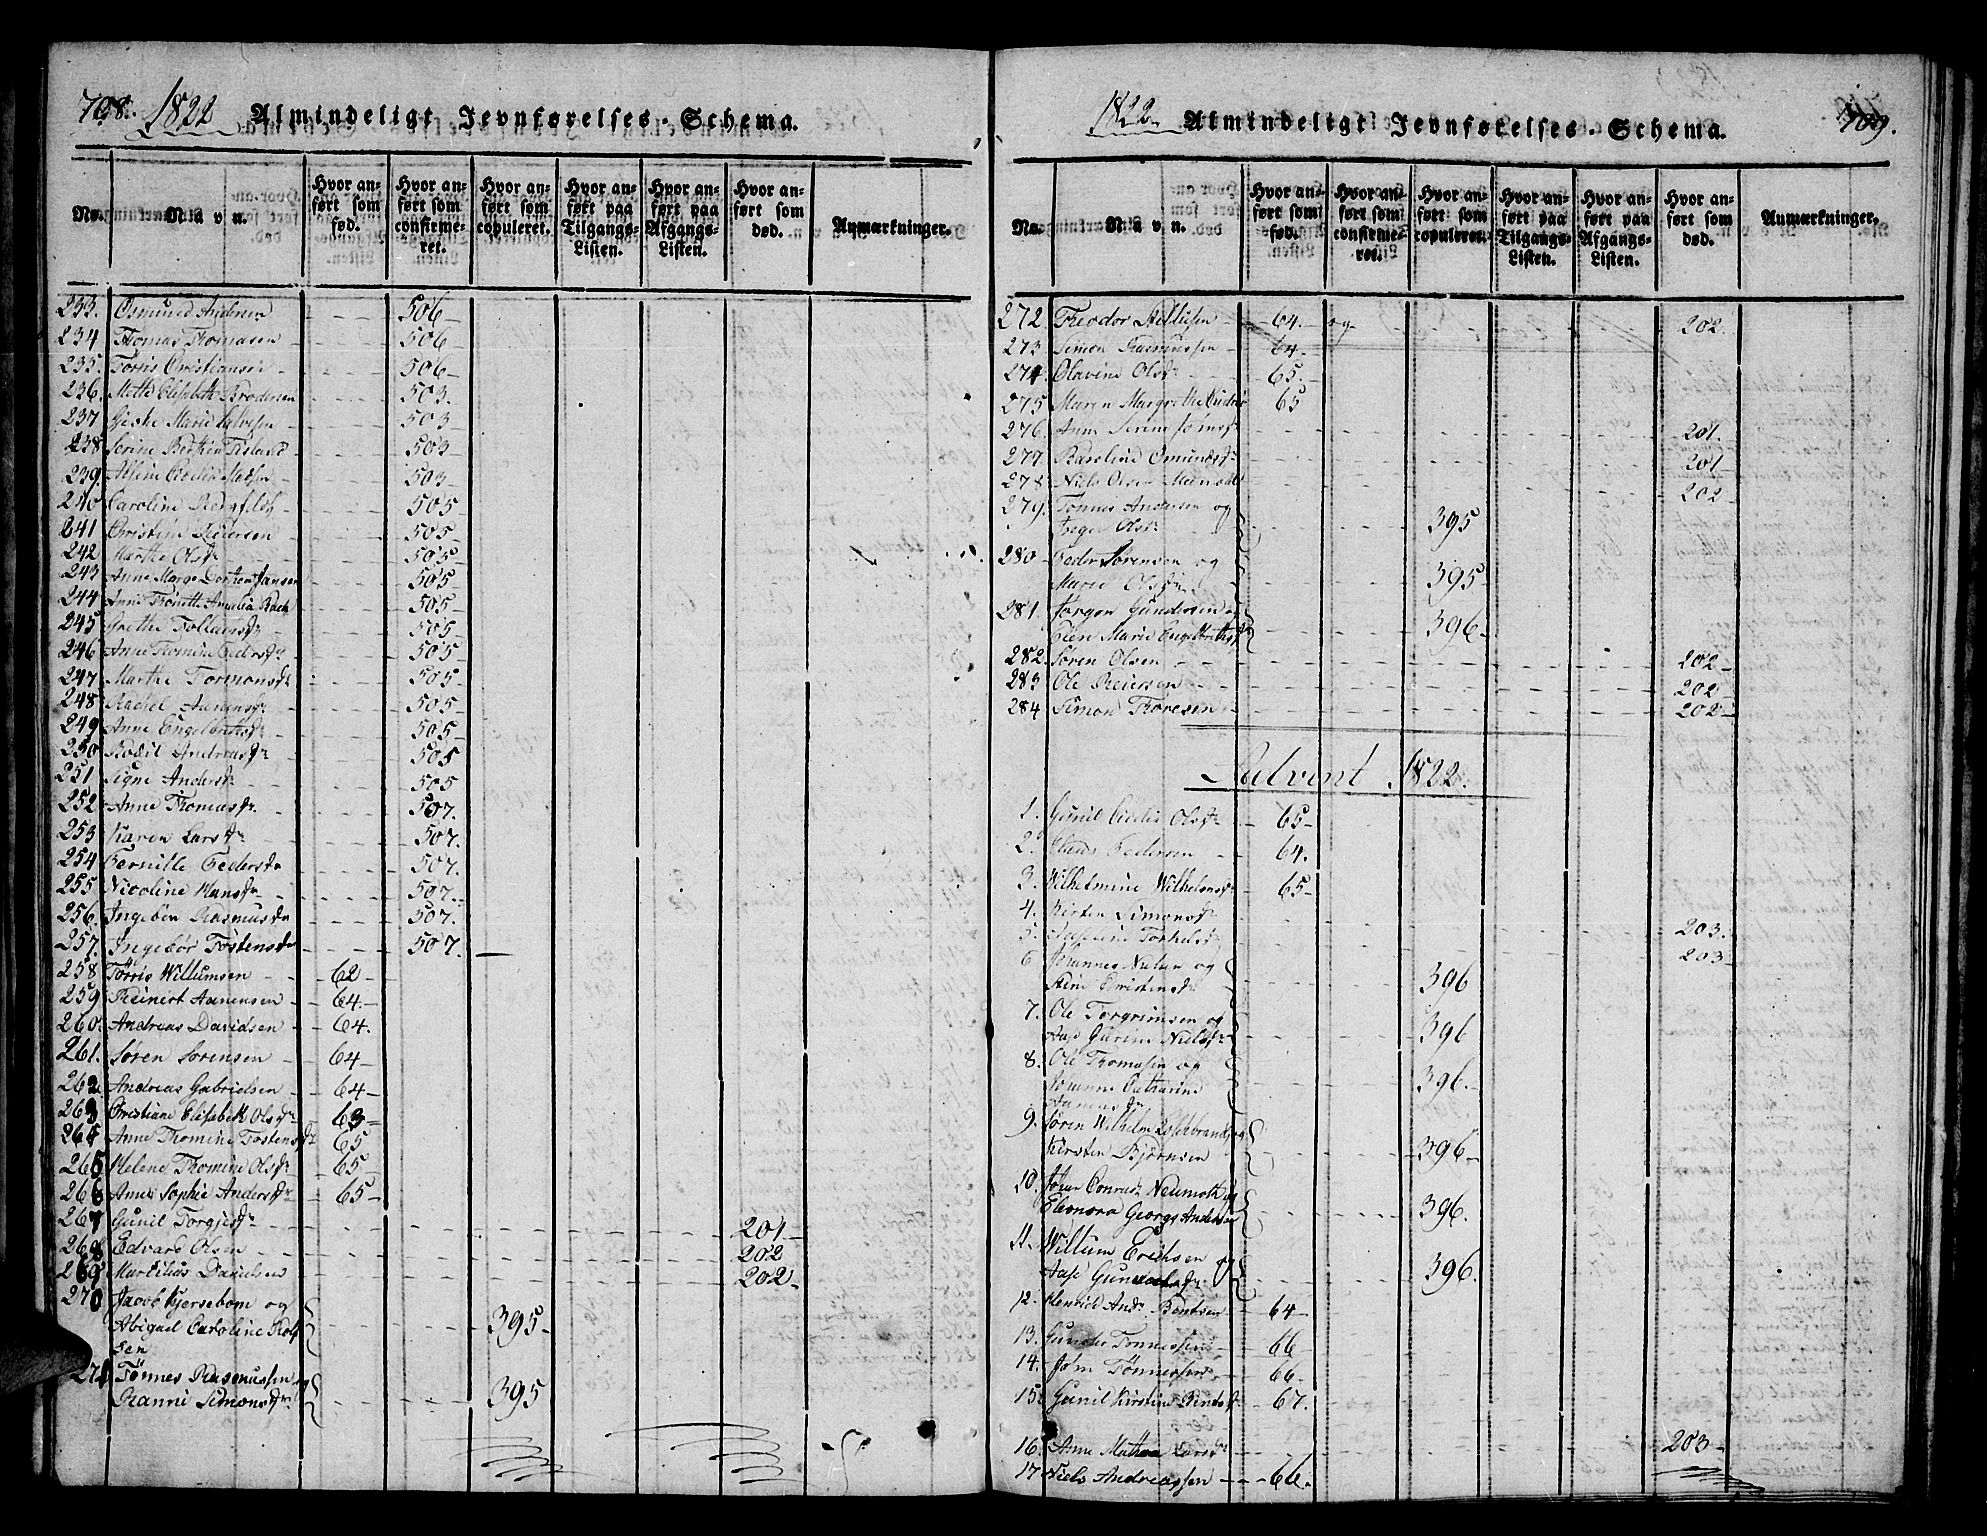 708. 1822 Almindeligt Jevnførelses-Schema.
No. Navn. Hvor anført som fød. Hvor anført som confirmeret. Hvor anført som copuleret. Hvor anført paa Tilgangs-Listen. Hvor anført paa Afgangs-Listen. Hvor anført som død. Anmærkninger.
233. Osmund Andersen 506
234 Thomas Thomasen 506
235. Torris Christiansen 506
236. Mette Elisabeth Brodersen 503.
237 Giske Marie Calvesen 503
238 Serine 503
239. 503
240 Caroline 505
241 Christine Pedersen 505
242 Marthe Olsdr 505
243 Anne Marge Dorthea Jansen 505
244 Anne Tønette Amalia Bach 505
245 Grethe Tollaksdr 505
246 Anne Thomine Pedersdr 505
247 Marthe Tormonsdr 505
248 Rachel Aanensdr 505
249 Anne Engelbretsdr 505
250 Bodil Andreasdr 505
251 Signe Andersdr 505
252 Anne Thomasdr 507.
253 Karen Larsdr 507.
254 Pernille Pedersdr 507.
255 Nicoline Hansdr 507.
256. Ingebor Rasmusdr 507.
257. Ingebor Tostensdr 507.
258 Torris Willumsen 62
259 Reinert Aanensen 64.
260. Andreas Davidsen 64.
261. Søren Sørensen 64
262 Andreas Gabrielsen 64
263 Christiane Elisabeth Olsdr 63
264 Anne Thomine Tostensdr 65
265 Helene Thomine Olsdr 65
266 Anne Sophie Andersdr 65
267 Gunil Torgjesdr 201
268 Edvard Olsen 202
269 Martilius Danielsen 202
270 Jacob Kjersebom og
Abigael Caroline Rolf
sen 395
271 Tønnes Rasmussen og
Ranni Simonsdr 395
1822. Almindeligt Jevnførelses-Schema. 709.
No. Navn. Hvor anført som fød. Hvor anført som confirmeret. Hvor anført som copuleret. Hvor anført paa Tilgangs-Listen. Hvor anført paa Afgangs-Listen. Hvor anført som død. Anmærkninger.
272. Theodor 64. og 202.
273 Simon Rasmussen 64.
274 Olavine Olsdr 65.
275 Maren Margrethe 65
276. Anne Serine 201.
277 Karoline Osmundsdr 201
278 Niels Olsen 202
279. Tønnes Andersen og
Inger Olsdr 395
280 Peder Sørensen og
Marie Olsdr 395
281. Jørgen Gundersen og
Ellen Marie Engelbretsdr 396
282. Søren Olsen 202
283 Ole Reiersen 202
284 Simon Thoresen 202
Advent 1822.
1. Gunil Cecilie Olsdr 65
2. Claus Pedersen 64.
3. Wilhelmine Wilhelmsdr 65
4. Kirsten Simonsdr 203.
5. Torkelsdr 203
6 Johannes Nielsen og
Stine Christensdr 396
7. Ole Torgrimsen og
Aase Gurine Nielsdr 396
8. Ole Thomasen og
Johanne Catharine
Aanensdr 396.
9. Søren Wilhelm og
Kirsten Bjørnsen 396
10. Johan Conrad Neumoth og
Eleonora Georgs Andersen 396.
11. Willum Eriksen og
Aase 396.
12. Henrich Andr. Bentsen 64
13. Gunder Tønnessen 66
14. John Tønnessen 66
15. Gunil Kirstine 67.
16. Anne Larsdr 203
17. Niels Andreassen 66.